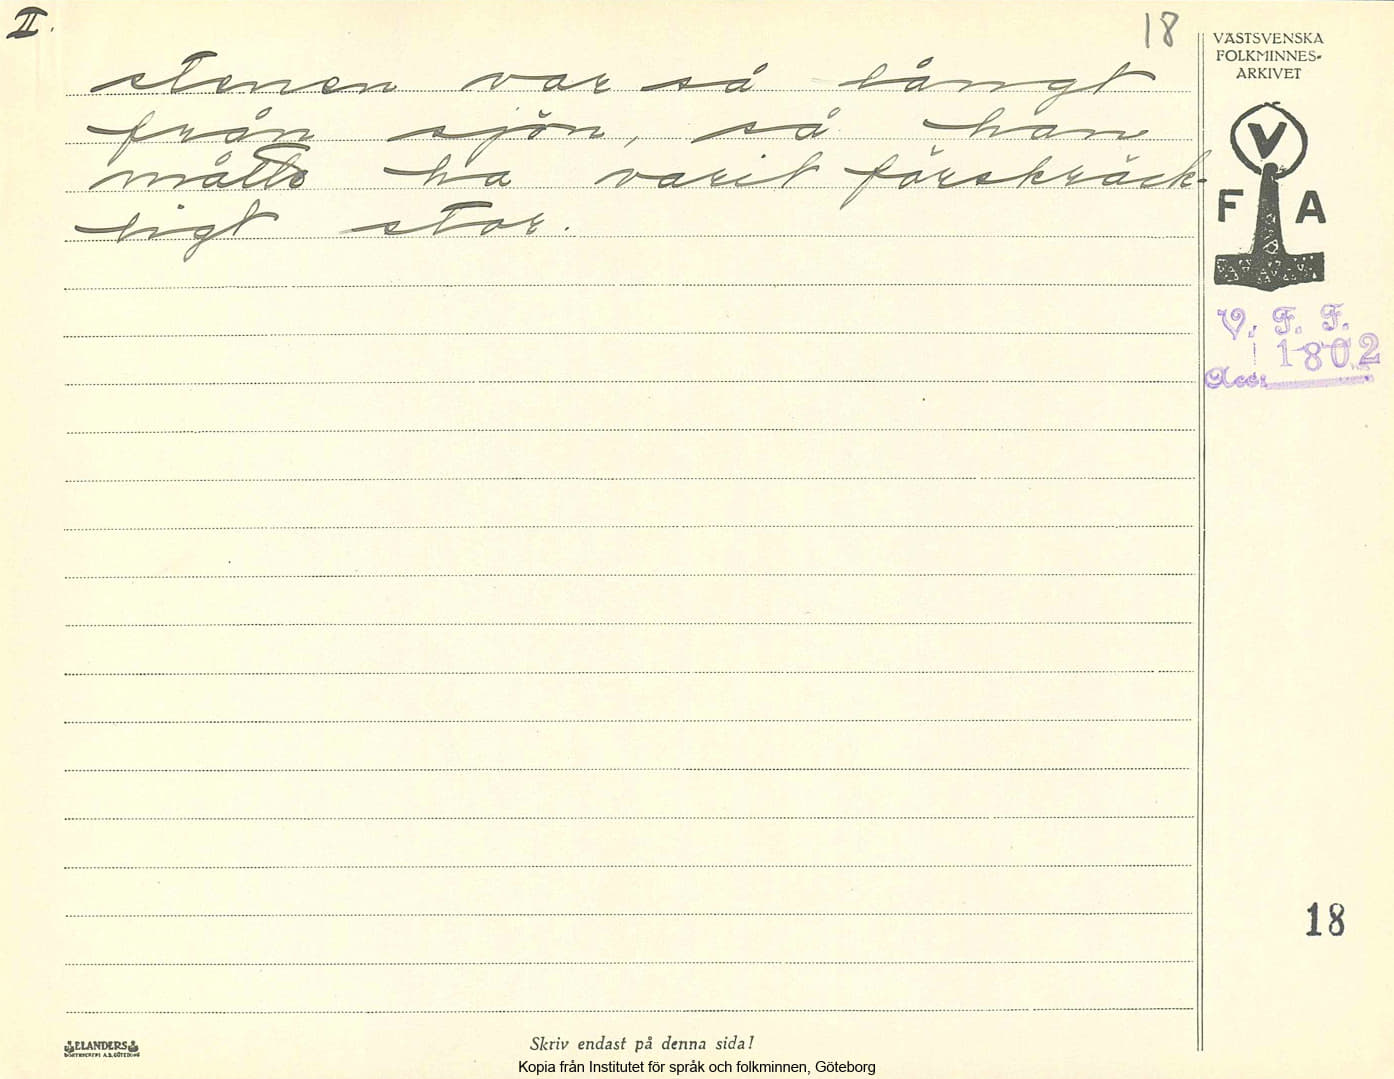 II.
18
stenen var så långt
från sjön, så han
måtte ha varit förskräck-
ligt stor.
VÄSTSVENSKA
FOLKMINNES-
ARKIVET
V
F A
V. F. F.
1802
Acc:
18
ELANDERS
BOKTRYCKERI A.B. GÖTEBORG
Skriv endast på denna sida!
Kopia från Institutet för språk och folkminnen, Göteborg